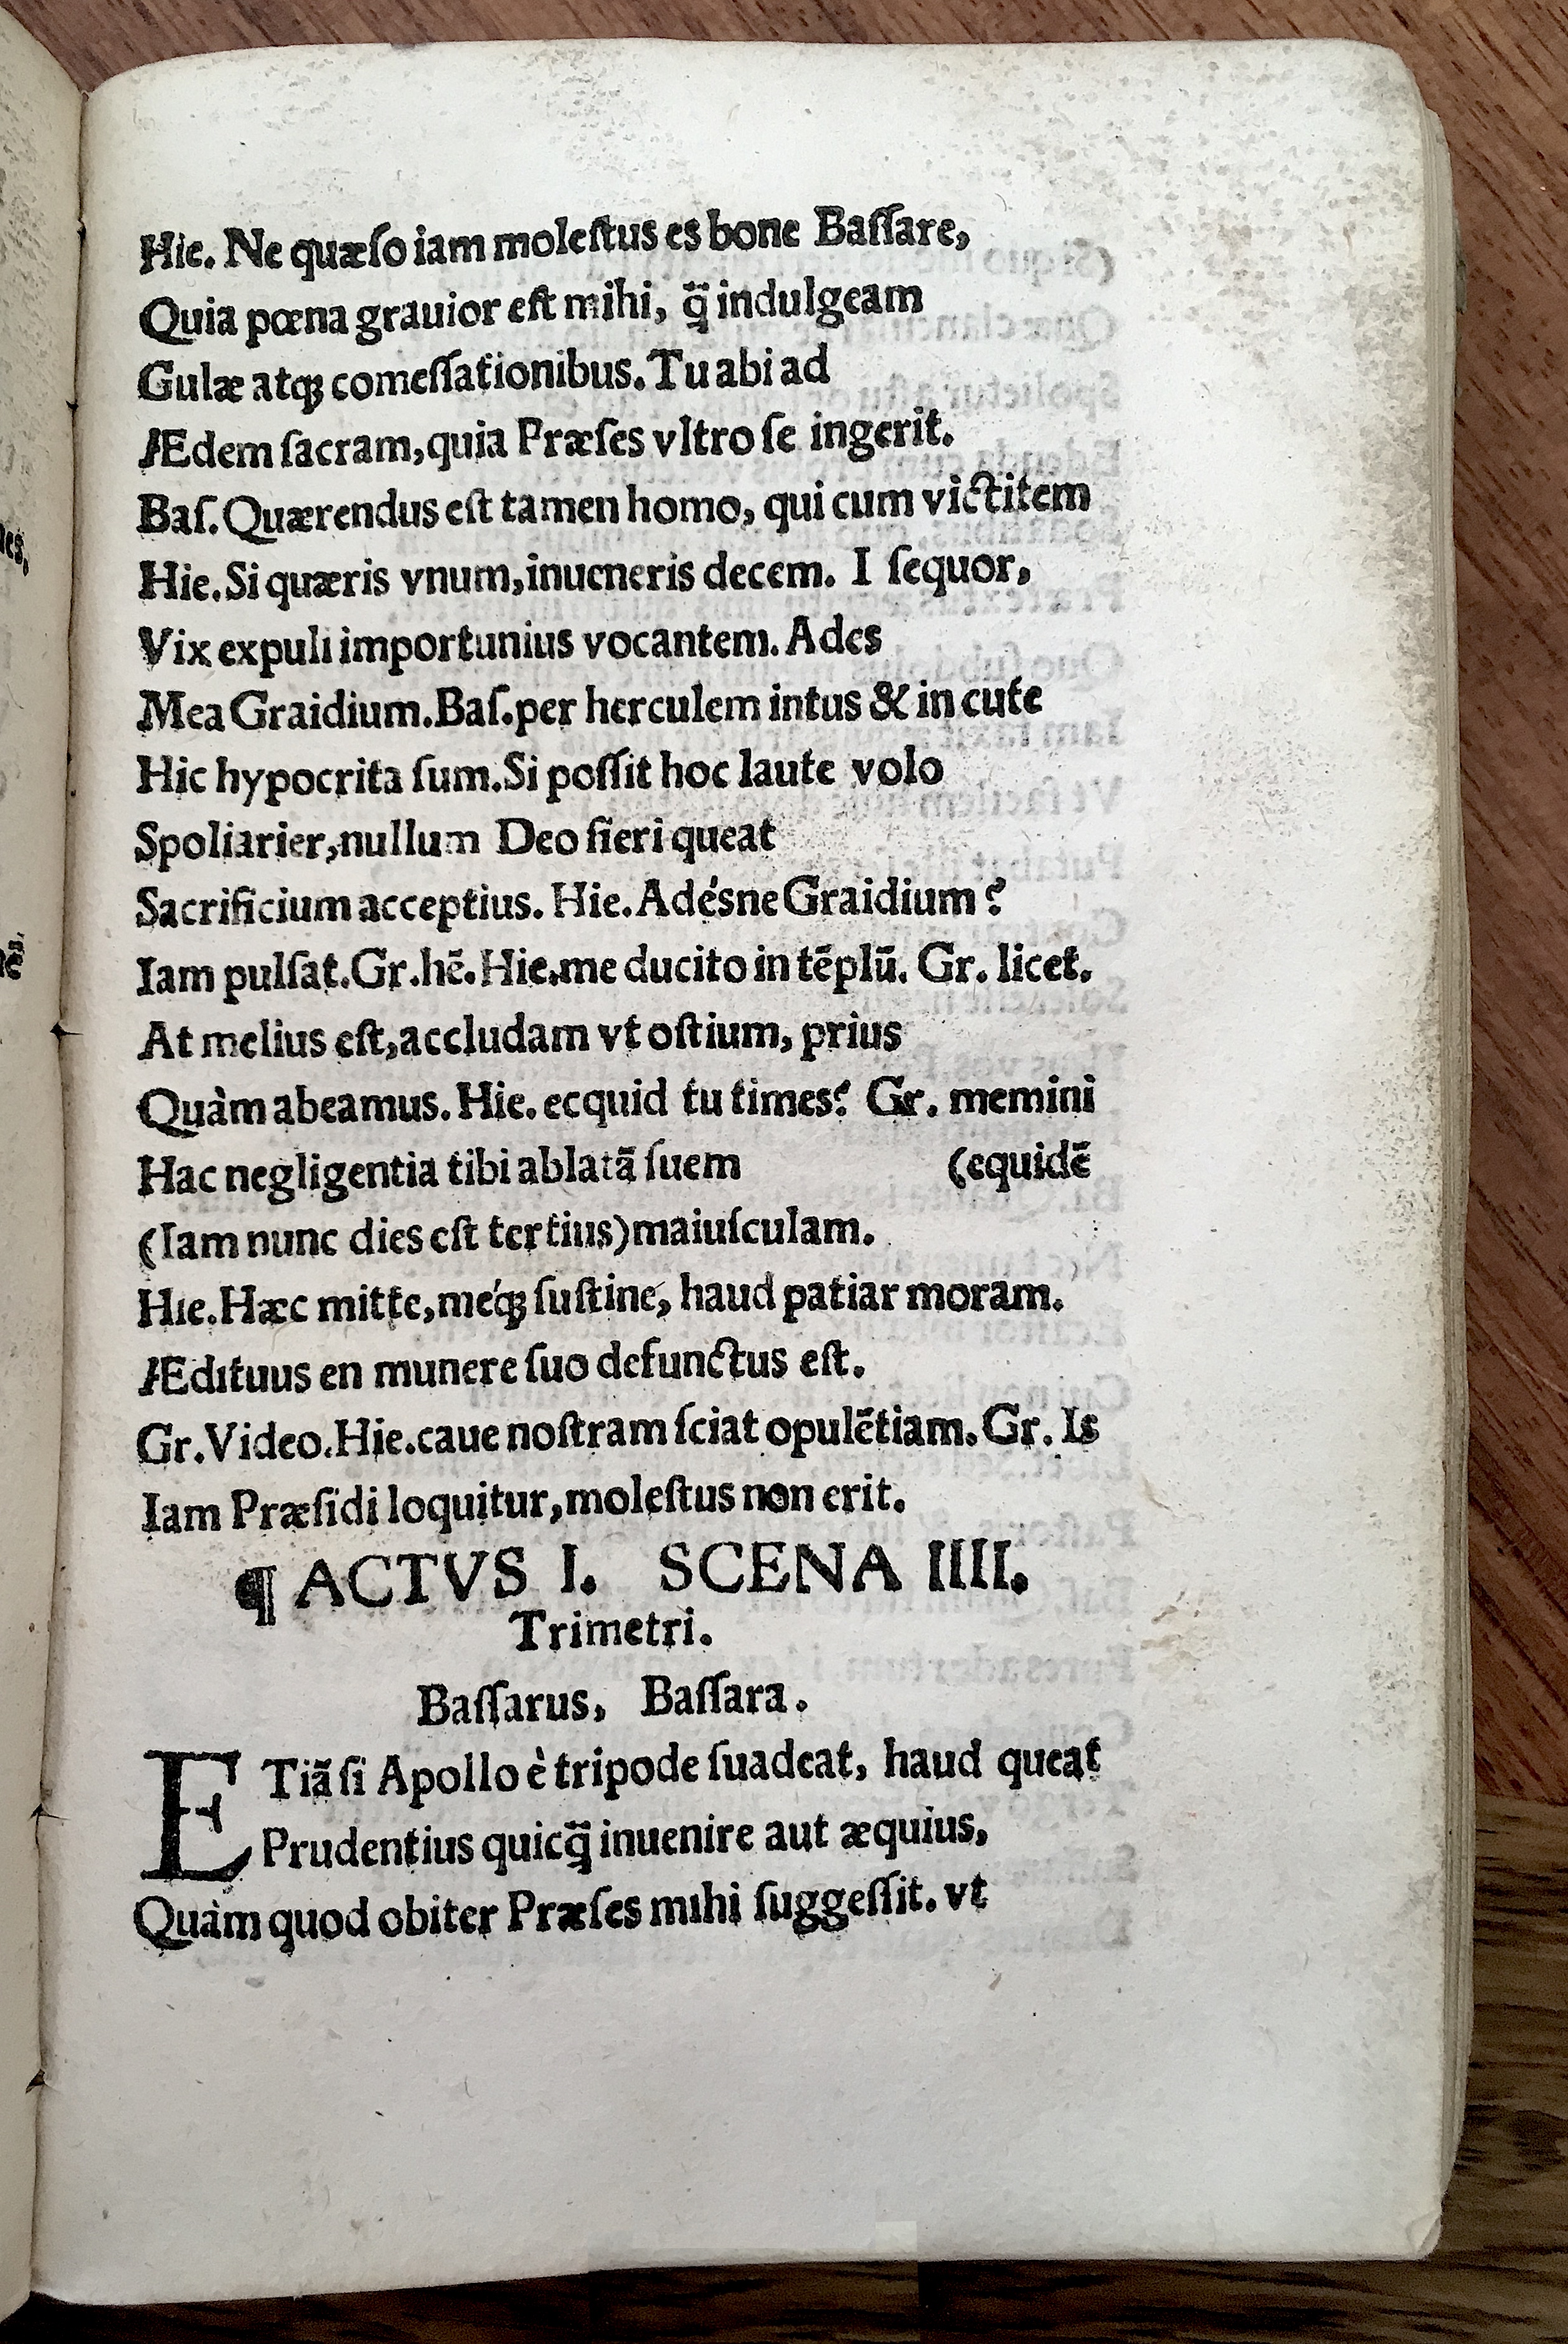 Hie. Ne quæſo iam moleſtus es bone Baſſare,
Quia pœna grauior eſt mihi, q̃̈ indulgeam
Gulæ atqꝫ comeſſationibus. Tu abi ad
Ædem ſacram, quia Præſes vltro ſe ingerit.
Baſ. Quærendus eſt tamen homo, qui cum victitem
Hie. Si quæris vnum, inueneris decem. I ſequor,
Vix expuli importunius vocantem. Ades
Mea Graidium. Baſ. per herculem intus & in cute
Hic hypocrita ſum. Si poſſit hoc laute volo
Spoliarier, nullum Deo fieri queat
Sacrificium acceptius. Hie. Adésne Graidium?
Iam pulſat. Gr. hẽ. Hie. me ducito in tẽplũ. Gr. licet.
At melius eſt, accludam vt oſtium, prius
Quàm abeamus. Hie. ecquid tu times? Gr. memini
Hac negligentia tibi ablatã ſuem (equidẽ
(Iam nunc dies eſt tertius) maiuſculam.
Hie. Hæc mitte, méqꝫ ſuſtine, haud patiar moram.
Ædituus en munere ſuo defunctus eſt.
Gr. Video. Hie. caue noſtram ſciat opulẽtiam. Gr. Is
Iam Præſidi loquitur, moleſtus non erit.
¶ ACTVS I. SCENA IIII.
Trimetri.
Baſſarus, Baſſara.
ETiã ſi Apollo è tripode ſuadeat, haud queat
Prudentius quicq̃̈ inuenire aut æquius,
Quàm quod obiter Præſes mihi ſuggeſſit. vt